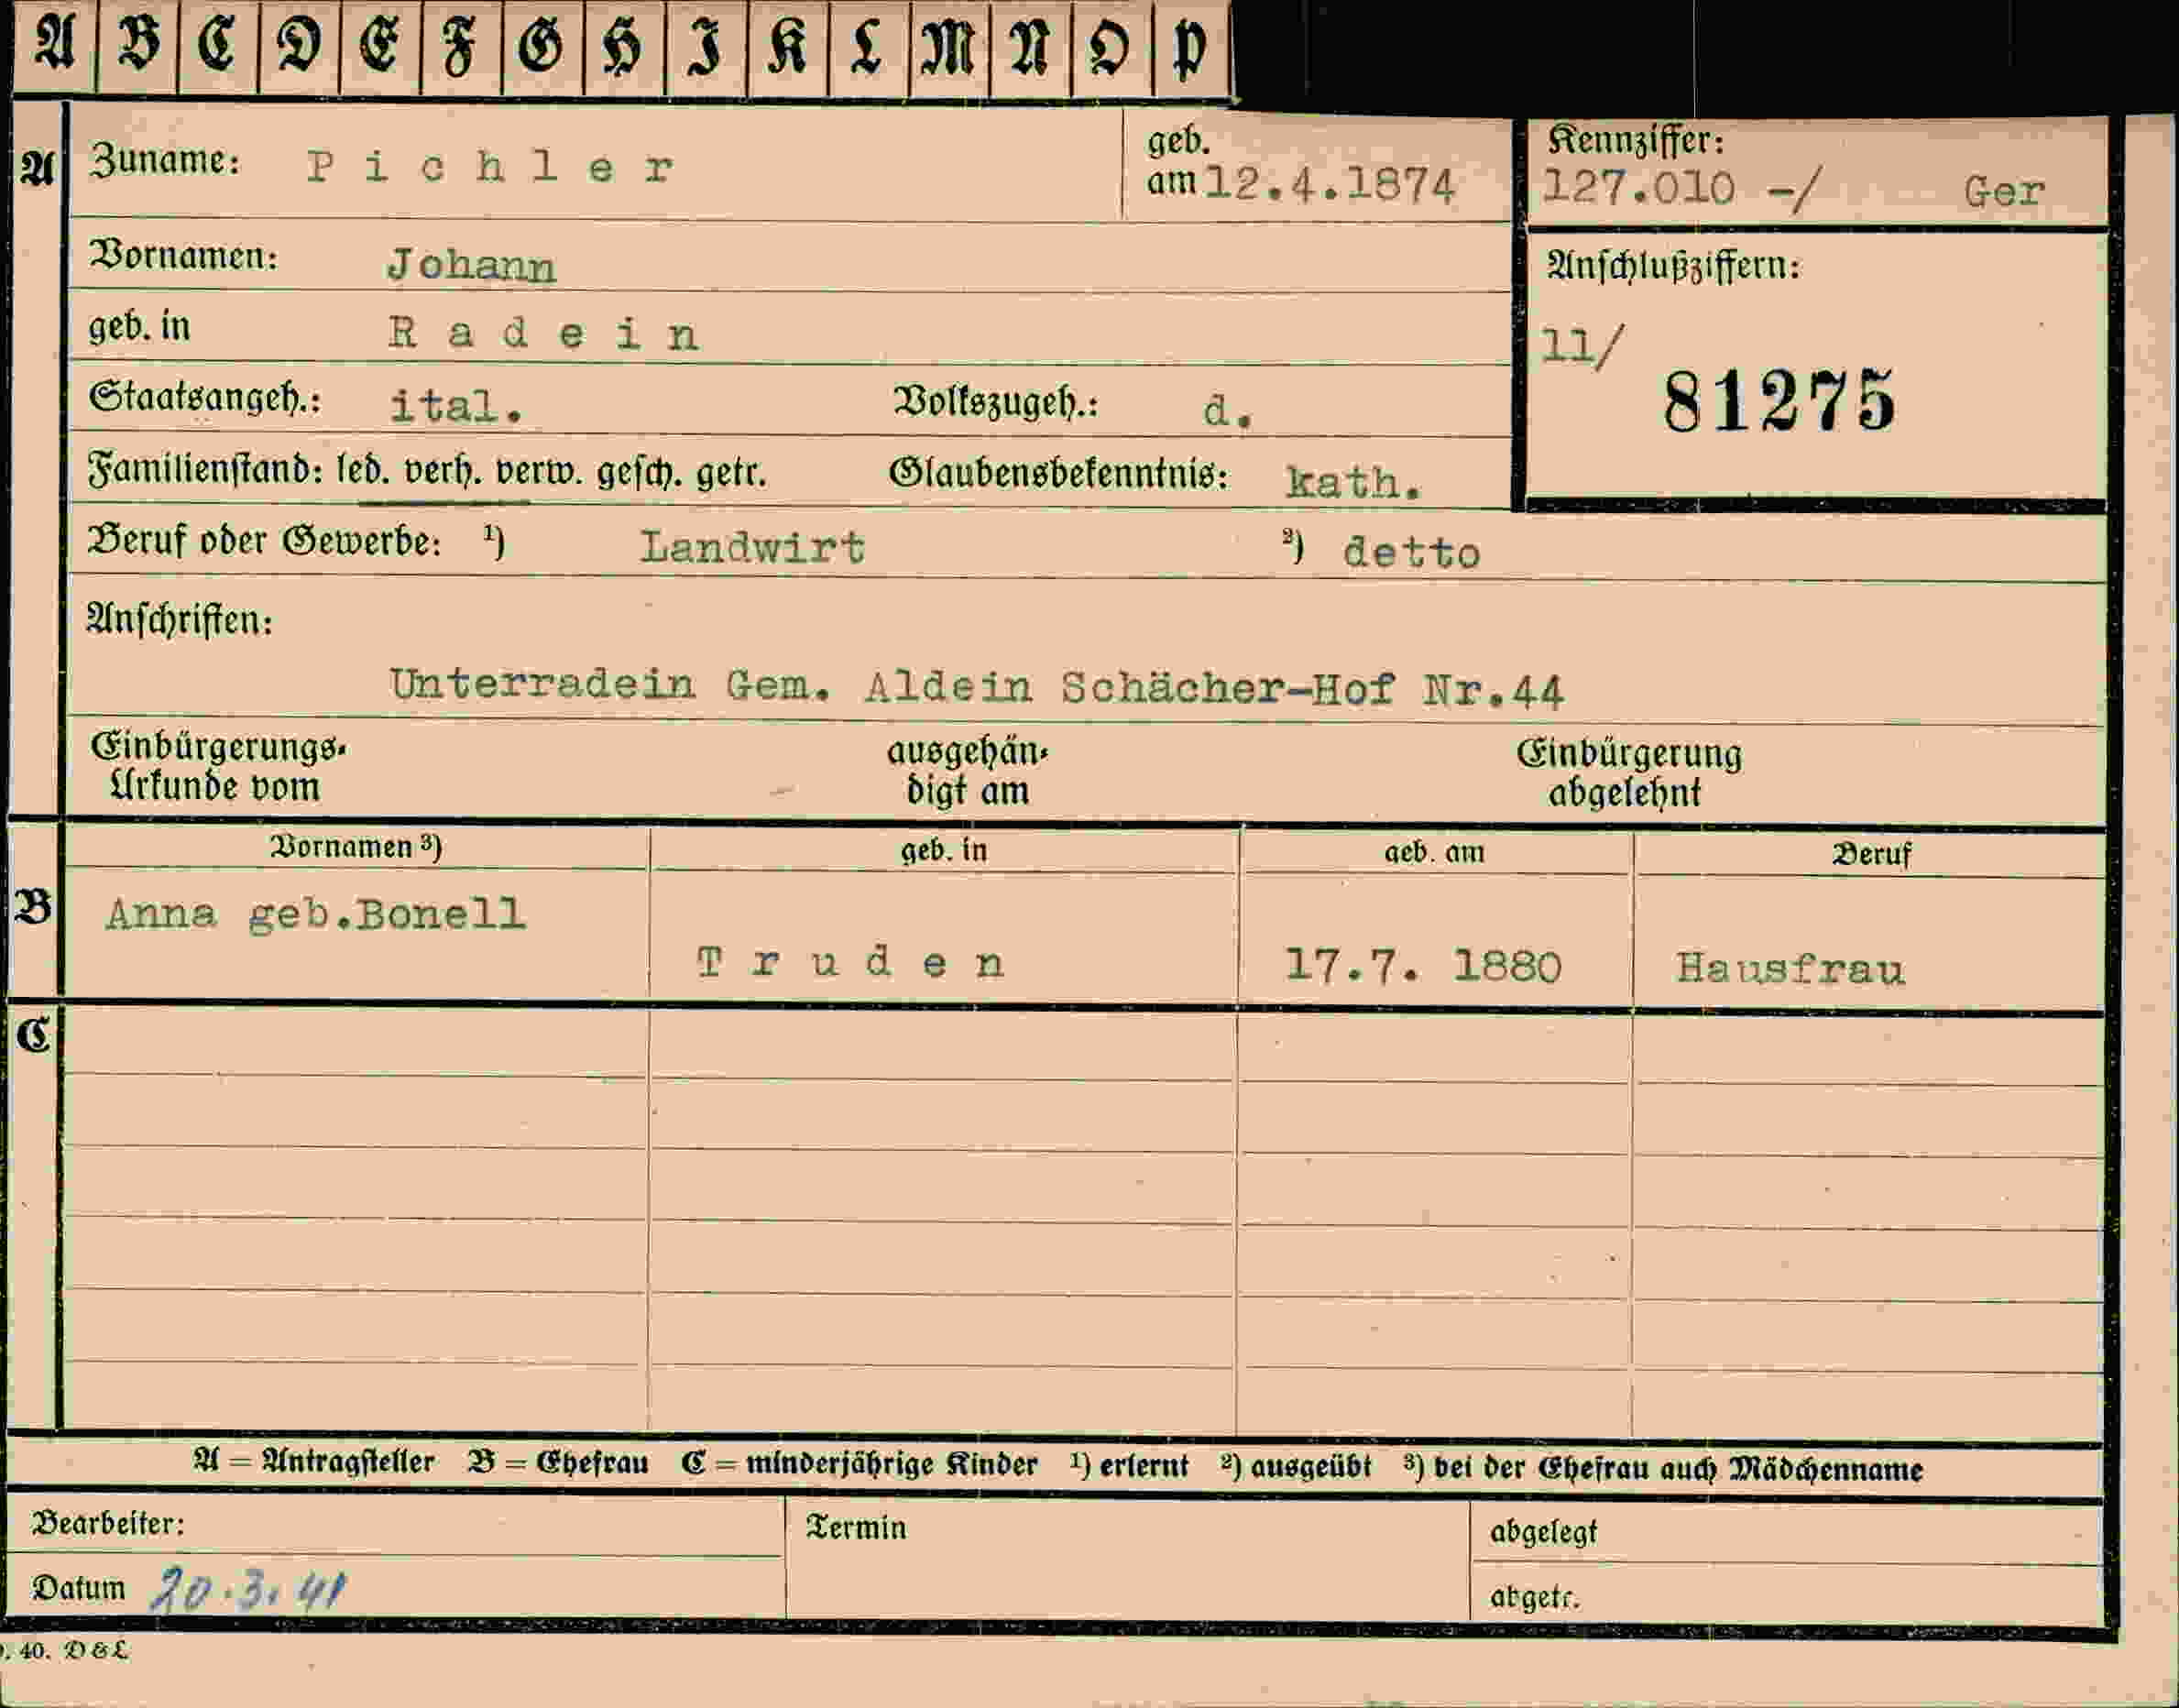 A B C D E F G H I K L M N O P
A Zuname: Pichler geb. am 12.4.1874 Kennziffer: 127.010 -/ Ger
Vornamen: Johann Anschlußziffern:
geb. in Radein 11/ 81275
Staatsangeh.: ital. Volkszugeh.: d.
Familienstand: led. verh. verw. gesch. getr. Glaubensbekenntnis: kath.
Beruf oder Gewerbe: ¹) Landwirt ²) detto
Anschriften:
Unterradein Gem. Aldein Schächer-Hof Nr.44
Einbürgerungs- ausgehän- Einbürgerung
Urkunde vom digt am abgelehnt
Vornamen ³) geb. in geb. am Beruf
B Anna geb.Bonell
Truden 17.7. 1880 Hausfrau
C
A = Antragsteller B = Ehefrau C = minderjährige Kinder ¹) erlernt ²) ausgeübt ³) bei der Ehefrau auch Mädchenname
Bearbeiter: Termin abgelegt
Datum 20.3.41 abgetr.
. 40. D & L